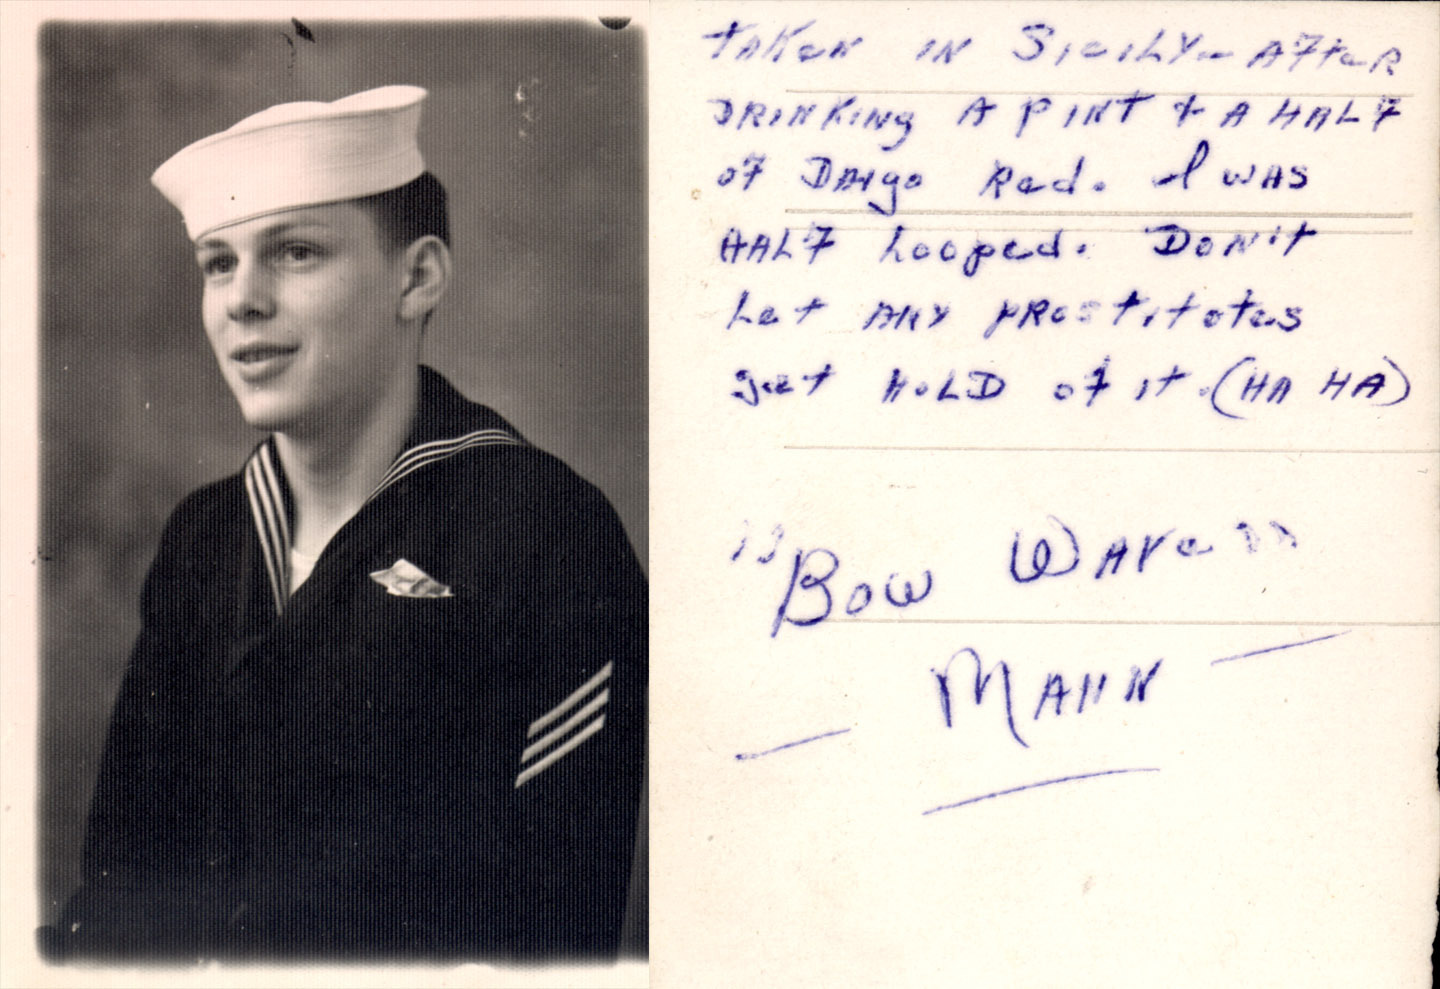 TAKen IN SiciLY - AFTeR
DRINKing A PINT + A HALF
OF DAigo Red. I WAS
HALF Looped. DON't
Let ANY PROstitotes
get HOLD OF it. (HA HA)
"Bow WAVe"
MAHN